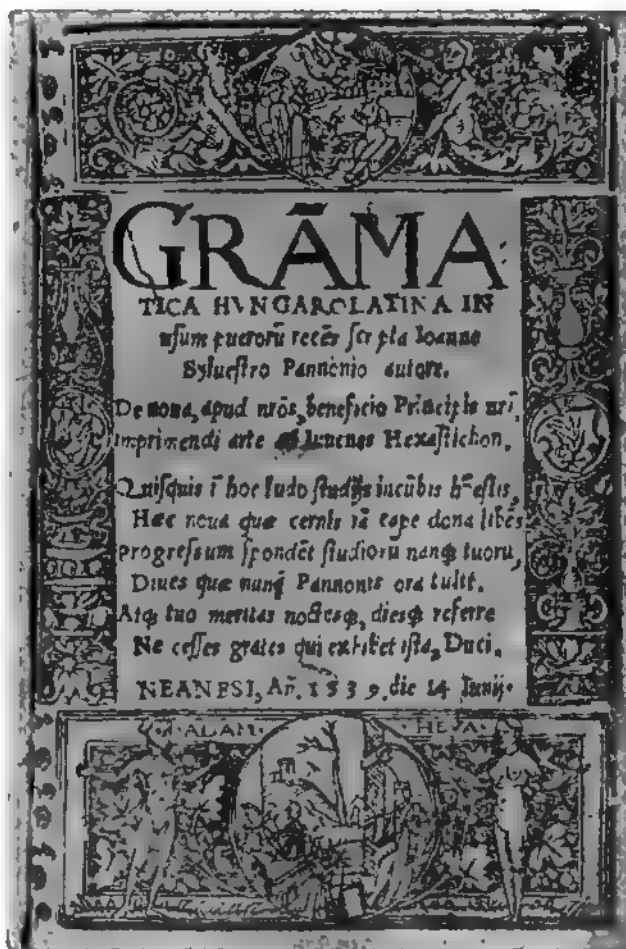 GRĀMA
TICA HVNGAROLATINA IN
uſum puerorū recēs ſcripta Ioanne
Sylueſtro Pannonio autore.
De noua, apud nr̄os, beneficio Principis nr̄i,
imprimendi arte ad Iuuenes Hexaſtichon.
Quiſquis ī hoc ludo ſtudijs incūbis
Hæc noua quæ cernis iā cape dona libēs
Progreſſum ſpondēt ſtudiorū nanq; tuorū,
Diues quæ nunq̄ Pannonis ora tulit.
Atq; tuo meritas noctesq;, diesq; referre
Ne ceſſes grates qui exhibet iſta, Duci.
NEANESI, Añ. 1539. die 14 Iunij.
ADAM· HEVA·